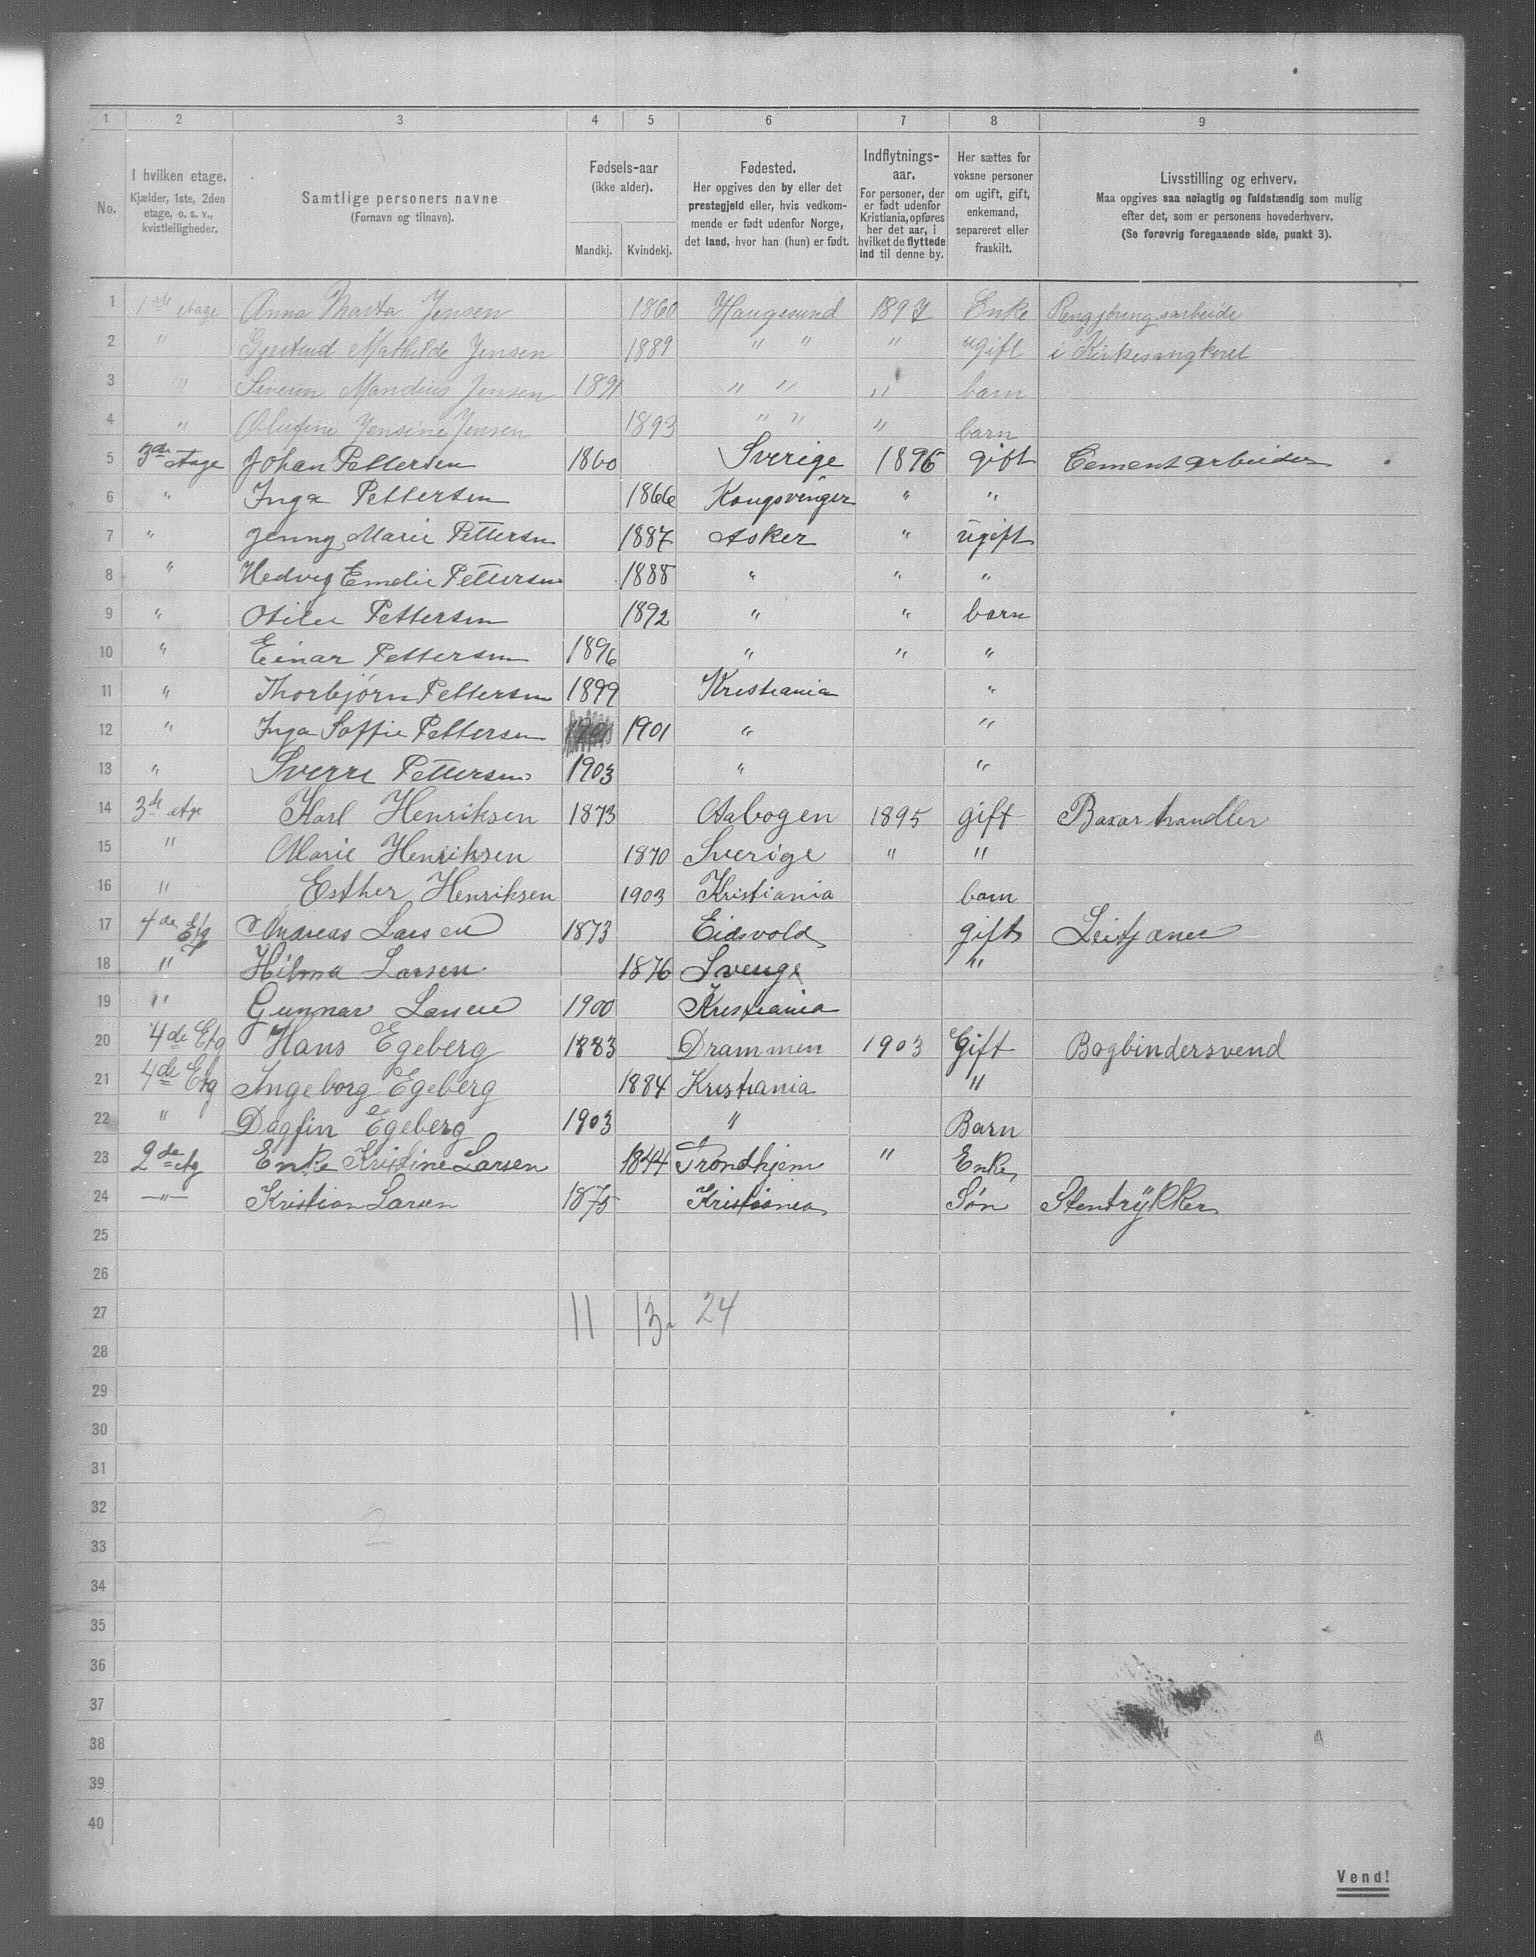 1 2 3 4 5 6 7 8 9
No.
I hvilken etage.
Kjælder, 1ste, 2den
etage, o. s. v.,
kvistleiligheder.
Samtlige personers navne
(Fornavn og tilnavn).
Fødsels-aar
(ikke alder).
Mandkj. Kvindekj.
Fødested.
Her opgives den by eller det
prestegjeld eller, hvis vedkom-
mende er født udenfor Norge,
det land, hvor han (hun) er født.
Indflytnings-
aar.
For personer, der
er født udenfor
Kristiania, opføres
her det aar, i
hvilket de flyttede
ind til denne by.
Her sættes for
voksne personer
om ugift, gift,
enkemand,
separeret eller
fraskilt.
Livsstilling og erhverv.
Maa opgives saa nøiagtig og fuldstændig som mulig
efter det, som er personens hovederhverv.
(Se forøvrig foregaaende side, punkt 3).
1 1ste etage Anna Marta Jensen 1860 Haugesund 1897 Enke Rengjøringsarbeide
2 " Gjertrud Mathilde Jensen 1889 " " " ugift i Kirkesangkoret
3 " Severin Mandius Jensen 1891 " " " barn
4 " Olufine Jensine Jensen 1893 " " " barn
5 3de etage Johan Pettersen 1860 Sverige 1896 gift Cementarbeider
6 " Inga Pettersen 1866 Kongsvinger " "
7 " Jenny Marie Pettersen 1887 Asker " ugift
8 " Hedvig Emelie Pettersen 1888 " " "
9 " Otilie Pettersen 1892 " " barn
10 " Einar Pettersen 1896 " " "
11 " Thorbjørn Pettersen 1899 Kristiania "
12 " Inga Soffie Pettersen 1901 " "
13 " Sverre Pettersen 1903 " "
14 3de etge Karl Henriksen 1873 Aabogen 1895 gift Basarhandler
15 " Marie Henriksen 1870 Sverige " "
16 " Esther Henriksen 1903 Kristiania barn
17 4de Etg Andreas Larsen 1873 Eidsvold gift
18 " Hilma Larsen 1876 Sverige "
19 " Gunnar Larsen 1900 Kristiania
20 4de Etg Hans Egeberg 1883 Drammen 1903 Gift Bogbindersvend
21 4de Etg Ingeborg Egeberg 1884 Kristiania "
22 " Dagfin Egeberg 1903 " Barn
23 2de etg Enke Kristine Larsen 1844 Trondhjem " Enke
24 —"— Kristian Larsen 1875 Kristiania Søn Stentrykker
25
26
27 11 13 24
28
29
30
31
32
33 2
34
35
36
37
38
39
40
Vend!